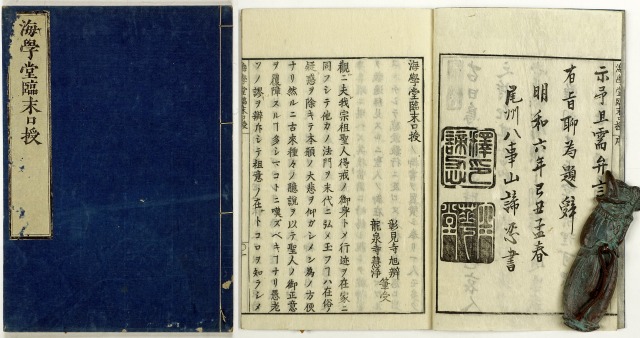 海學堂臨末口授
示予且需弁言
有旨聊為題辭
明和六年己丑孟春
尾州八事山諦忍書
海學堂臨末口授
彰見寺旭辨
龍泉寺慧淨
筆受
觀ニ夫我宗祖聖人得戒ノ御身トノ行迹ヲ在家ニ
同フシテ他力ノ法門ヲ末代ニ弘メ玉フヿハ在俗
疑惑ヲ除キテ本願ノ大悲ヲ仰ガシメン為ノ方便
ナリ然ルニ古来種々ノ臆說ヲ以テ聖人ノ御正意
ヲ覆障スルヿ多シマコトニ嘆ズベキヿナリ愚老
ソノ謬ヲ辨斥シテ祖意ノ在トコロヲ知ラシメ